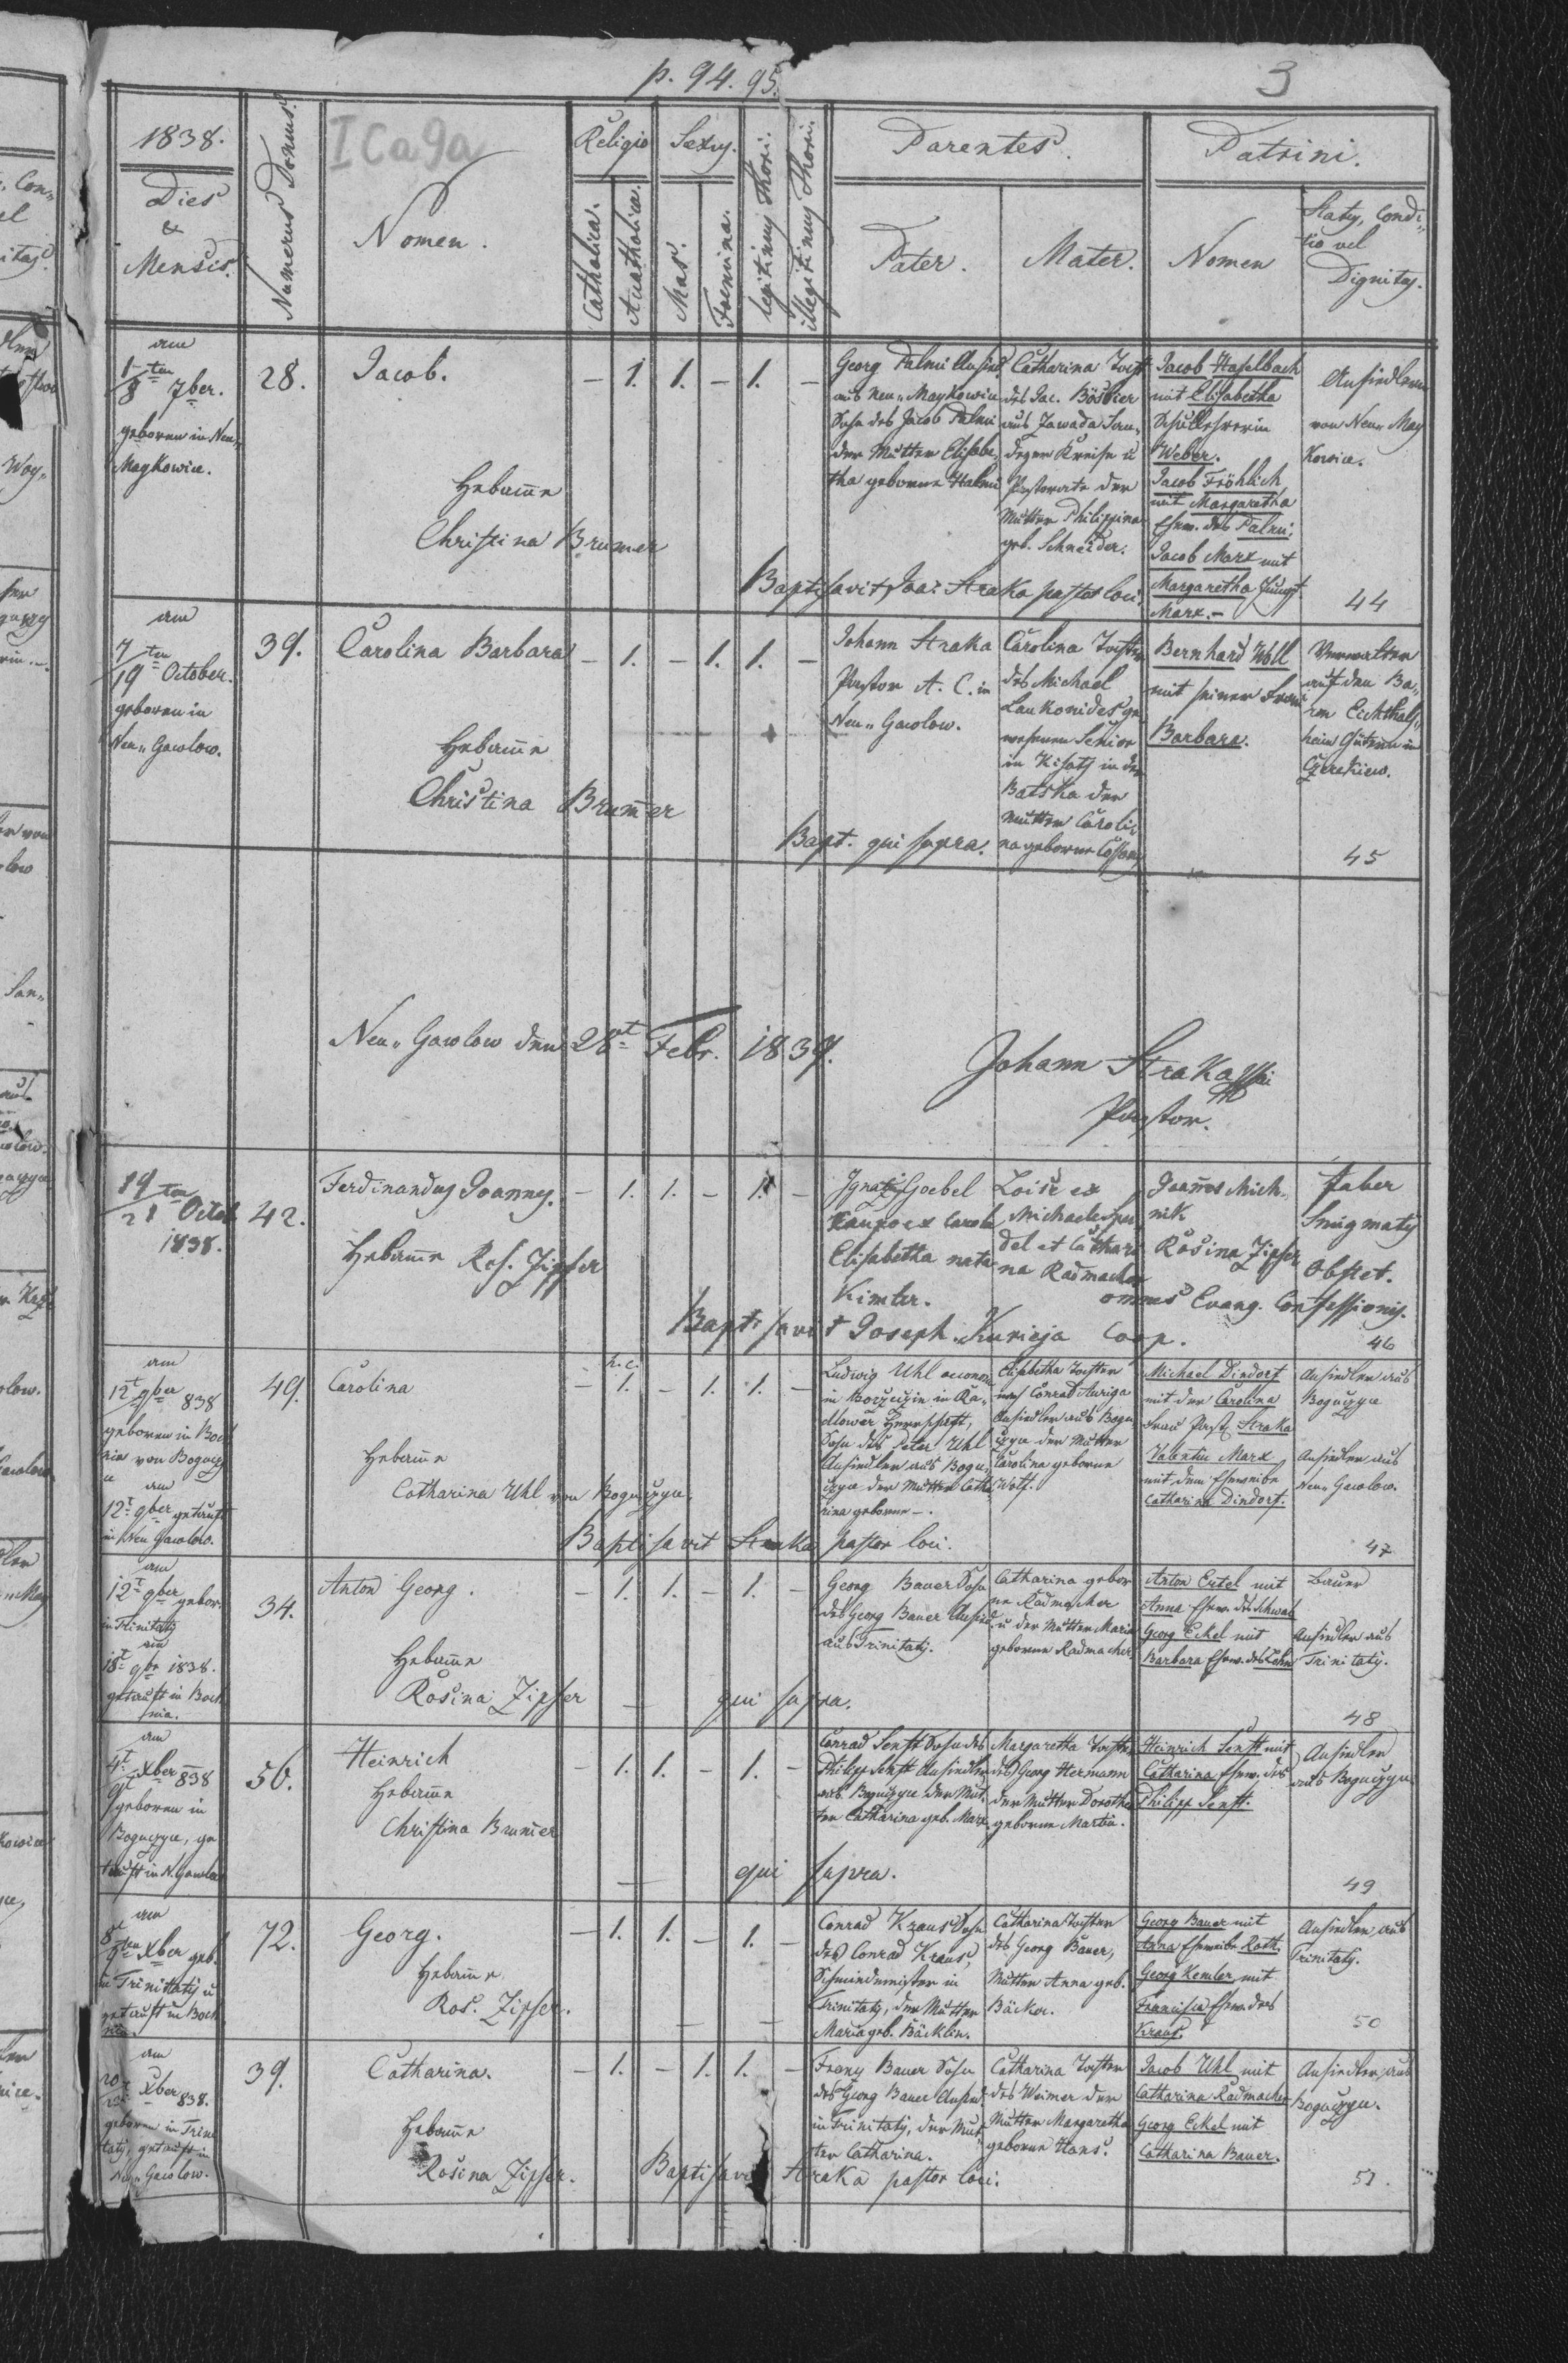 p. 94. 95.
3
1838.
Dies
&
Mensis.
Numerus Domus.
I Ca 9a
Nomen.
Religio
Catholica.
Acatholica.
Sexus.
Mas.
Foemina.
legitimus thori.
illegitimus thori.
Parentes.
Pater.
Mater.
Patrini.
Nomen
Status, Condi„
tio vel
Dignitas.
am
1ten
8 7ber.
geboren in Neu„
Maykowice.
28.
Jacob.
Hebame
Christina Brumer
– 1. 1. – 1. –
Georg Palmi Ansied.
aus Neu„ Maykowice
Sohn des Jacob Palmi
der Mutter Elisabe„
tha geborne
Catharina Tocht
des Jac.
aus Zawada San„
dezer Kreise u
Pastorate der
Mutter Philippina
geb. Schneider.
Jacob Haselbach
mit Elisabetha
Schullehrerin
Weber.
Jacob Fröhlich
mit Margaretha
Ehew. des Palmi;
Jacob Marx mit
Margaretha
Marx. –
Ansiedlern
von Neu„ May
kowice.
Baptisavit Joa: Straka pastor loci.
44
am
7ten
19 October.
geboren in
Neu„ Gawlow.
39.
Carolina Barbara
Hebame
Christina Brumer
– 1. – 1. 1. –
Johann Straka
Pastor A. C. in
Neu„ Gawlow.
Carolina Tochter
des Michael
Laukonides ge„
wesenen Senior
in Kisatz in der
Batska der
Mutter Caroli„
na geborne
Bernhard Woll
mit seiner Frau
Barbara.
Verwalter
auf den Ba„
ron Eichthals„
hein Gütern in
Bapt. qui supra.
45
Neu„ Gawlow den 28t Febr. 1839.
Johann Straka
Pastor.
19ten
21 Octob
1838.
42.
Ferdinandus Joannes.
Hebame Ros. Zipser
– 1. 1. – 1. –
Ignatz Goebel
ex Carolo
Elisabetha nata
Kimler.
Loise ex
Michaele
del et Cathari
na Radmacher
Joannes Mich„
nik
Rosina Zipser
Faber
Obstet.
omnes Evang. Confessionis.
Baptisavit Joseph Kurieja Coop.
46
am
12t 9ber 838
geboren in Boc
am
12t 9ber getauft
in Neu Gawlow.
49.
Carolina
Hebame
Catharina Uhl von Bogucyce.
h. c.
– 1. – 1. 1. –
Ludwig Uhl
in Ra„
dlower Herrschaft,
Sohn des Peter Uhl
Ansiedler aus Bogu„
cyce der Mutter Catha
rina geborne –.
Elisabetha Tochter
des Conrad Auriga
Ansiedler aus Bogu
cyce der Mutter
Carolina geborne
Wolf.
Michael Dindorf
mit der Carolina
Frau Past. Straka
Valentin Marx
mit dem Eheweibe
Catharina Dindorf.
Ansiedler aus
Bogucyce
Ansiedler aus
Neu„ Gawlow.
Baptisavit Straka pastor loci.
47
am
12t 9ber gebor.
in Trinitatis
am
18t 9br 1838.
getauft in Boch
nia.
34.
Anton Georg.
Hebame
Rosina Zipser
– 1. 1. – 1. –
Georg Bauer Sohn
des Georg Bauer Ansied.
aus Trinitatis.
Catharina gebor
ne Radmacher
u der Mutter Maria
geborne Radmacher
Anton Ertel mit
Anna Ehew. des Schwab
Georg Eckel mit
Barbara Ehew. des
Bauer
Ansiedler aus
Trinitatis.
qui supra.
48
am
4t Xber 838
9t
geboren in
Bogucyce, ge
tauft in N. Gawlow
50.
Heinrich
Hebame
Christina Brumer
– 1. 1. – 1. –
Conrad Senft Sohn des
Philipp Senft Ansiedler
aus Bogucyce der Mut.
ter Catharina geb. Marx.
Margaretha Tochter
des Georg Hermann
der Mutter Dorothea
geborne Martin.
Heinrich Senft mit
Catharina Ehew. des
Philipp Senft.
Ansiedler
aus Bogucyce
qui supra.
49
am
8t
9ten Xber geb.
in Trinitatis u
getauft in Boch
nia.
72.
Georg.
Hebame
Ros. Zipser.
– 1. 1. – 1. –
Conrad Kraus Sohn
des Conrad Kraus,
Schmiedemeister in
Trinitatis, der Mutter
Maria geb. Bäcklin.
Catharina Tochter
des Georg Bauer,
Mutter Anna geb.
Bäcker.
Georg Bauer mit
Anna Eheweibe Roth.
Georg Kemler mit
Francisca Ehew. des
Kraus.
Ansiedler aus
Trinitatis.
50
am
20
22 Xber 838.
geboren in Trini
tatis, getauft in
Neu Gawlow.
39.
Catharina.
Hebame
Rosina Zipser.
– 1. – 1. 1. –
Franz Bauer Sohn
des Georg Bauer Ansied.
in Trinitatis, der Mut
ter Catharina.
Catharina Tochter
des Weimer der
Mutter Margaretha
geborne Hans.
Jacob Uhl mit
Catharina Radmacher
Georg Eckel mit
Catharina Bauer.
Ansiedler aus
Bogucyce.
Baptisavit Straka pastor loci.
51.